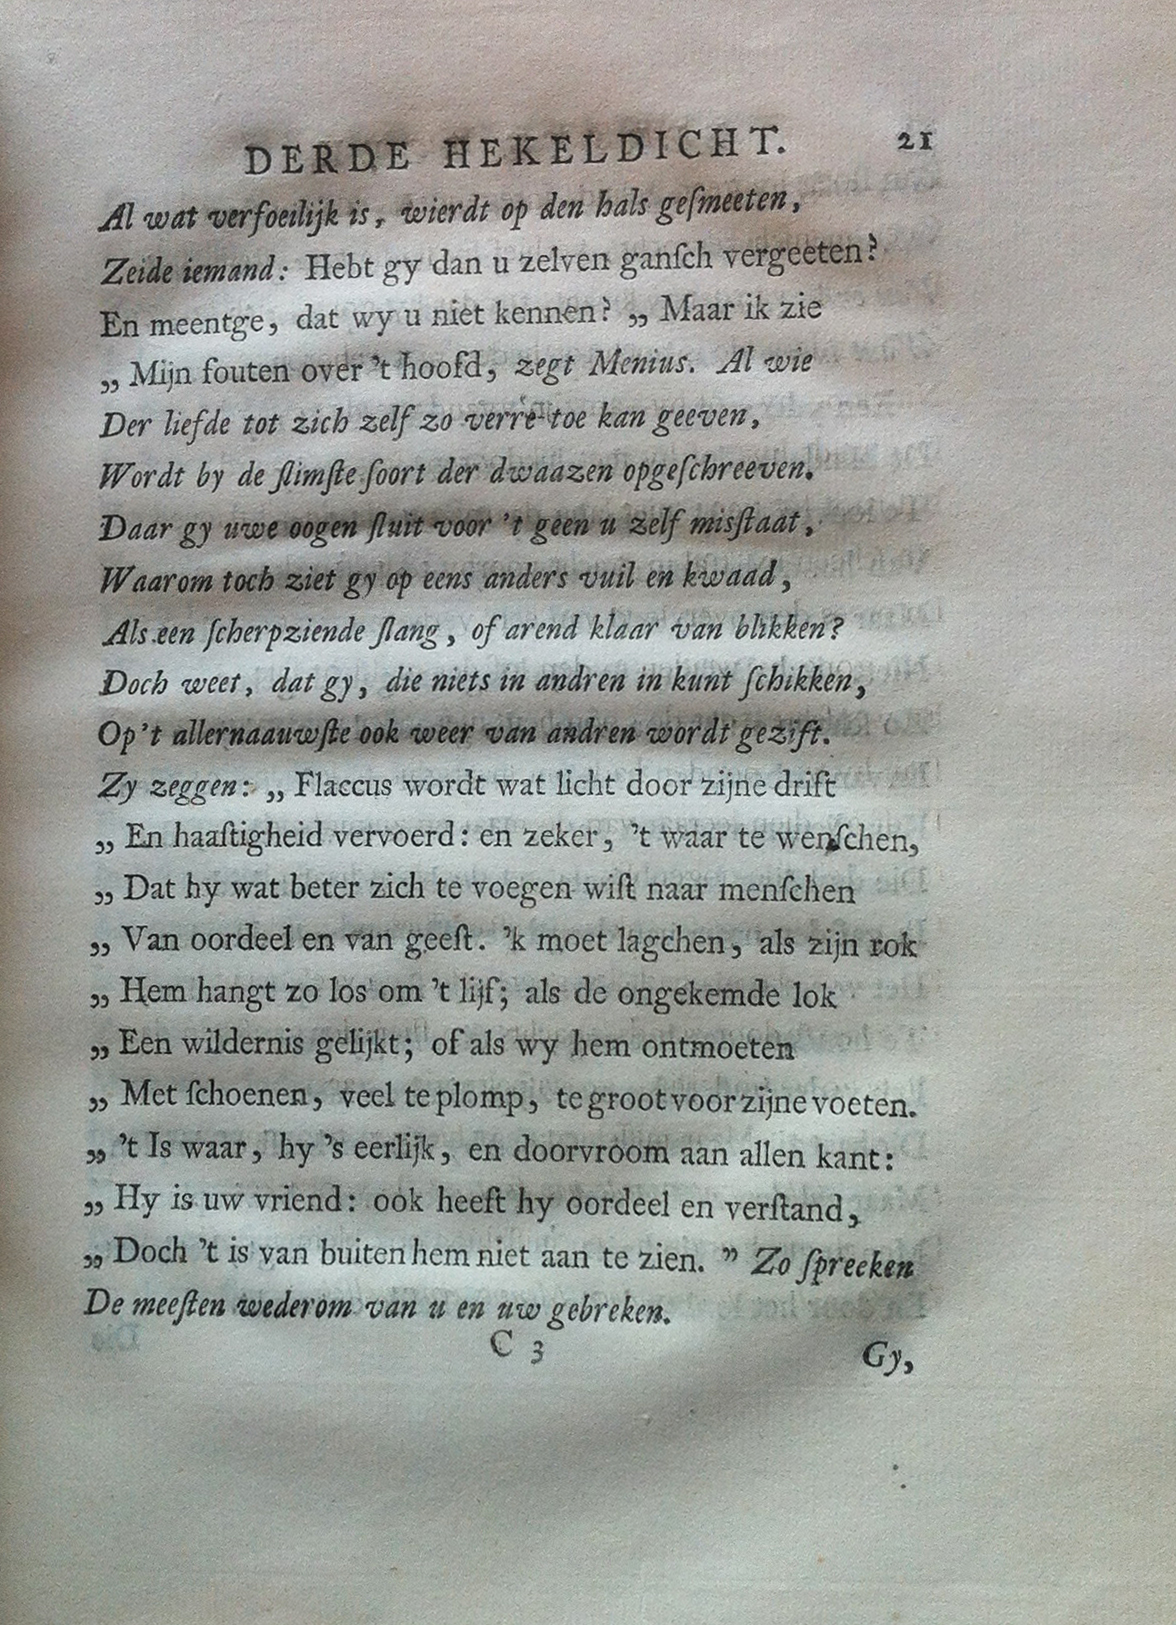 DERDE HEKELDICHT. 21
Al wat verfoeilijk is, wierdt op den hals geſmeeten,
Zeide iemand: Hebt gy dan u zelven ganſch vergeeten?
En meentge, dat wy u niet kennen? „ Maar ik zie
„ Mijn fouten over 't hoofd, zegt Menius. Al wie
Der liefde tot zich zelf zo verre toe kan geeven,
Wordt by de ſlimſte ſoort der dwaazen opgeſchreeven.
Daar gy uwe oogen ſluit voor 't geen u zelf misſtaat,
Waarom toch ziet gy op eens anders vuil en kwaad,
Als een ſcherpziende ſlang, of arend klaar van blikken?
Doch weet, dat gy, die niets in andren in kunt ſchikken,
Op 't allernaauwſte ook weer van andren wordt gezift.
Zy zeggen: „ Flaccus wordt wat licht door zijne drift
„ En haaſtigheid vervoerd: en zeker, 't waar te wenſchen,
„ Dat hy wat beter zich te voegen wiſt naar menſchen
„ Van oordeel en van geeſt. 'k moet lagchen, als zijn rok
„ Hem hangt zo los om 't lijf; als de ongekemde lok
„ Een wildernis gelijkt; of als wy hem ontmoeten
„ Met ſchoenen, veel te plomp, te groot voor zijne voeten.
„ 't Is waar, hy 's eerlijk, en doorvroom aan allen kant:
„ Hy is uw vriend: ook heeft hy oordeel en verſtand,
„ Doch 't is van buiten hem niet aan te zien. ” Zo ſpreeken
De meeſten wederom van u en uw gebreken.
C 3 Gy,